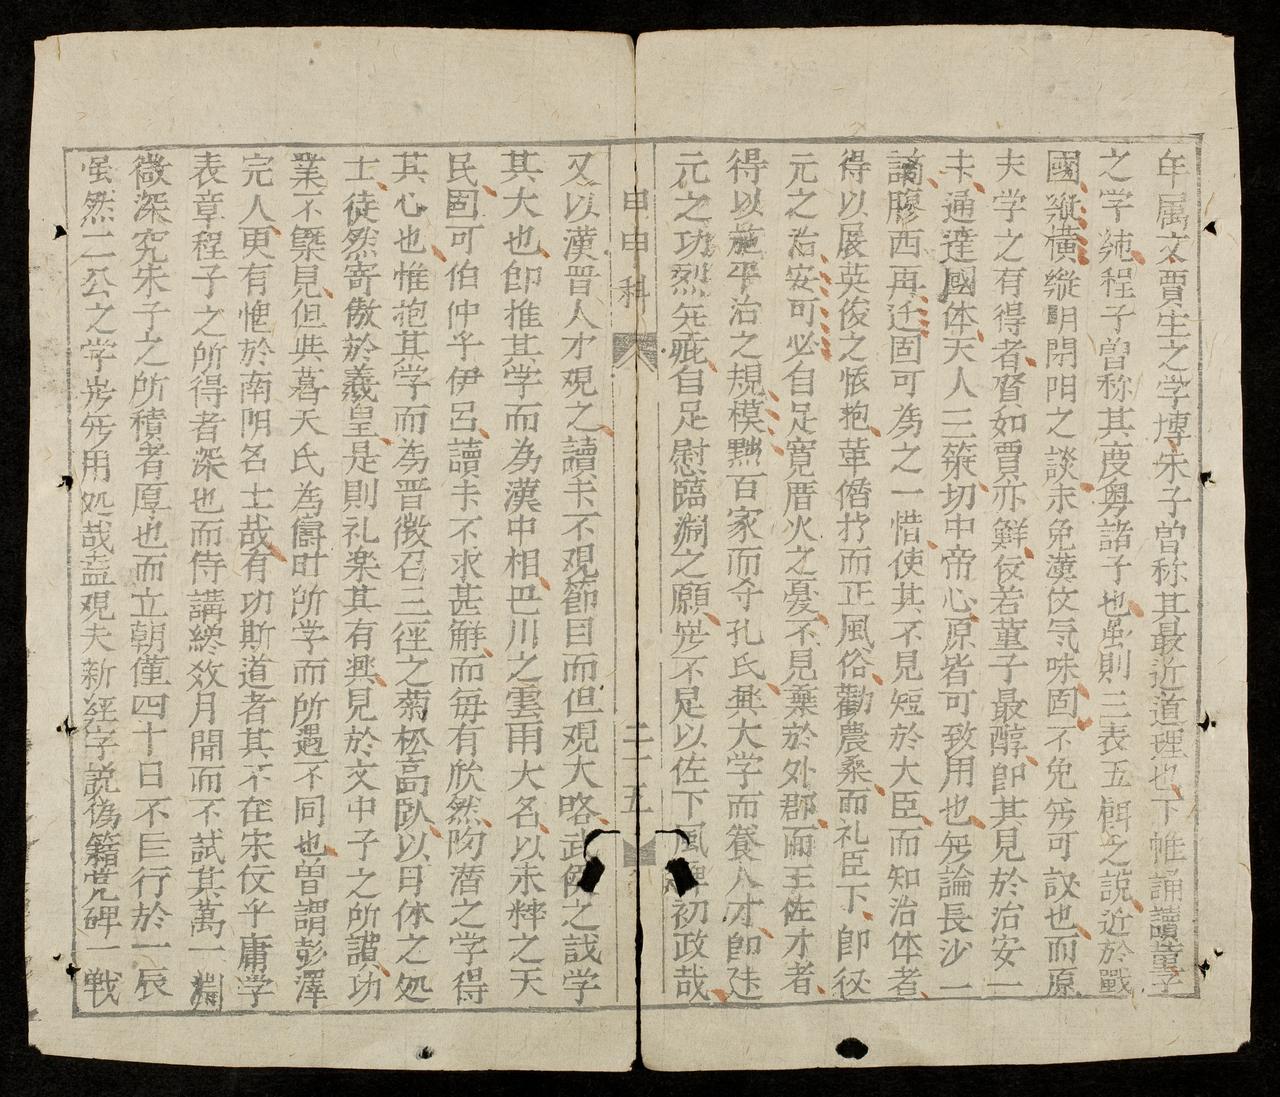 年属文賈生之学博朱子曽称其最近道理也下帷誦讀董子
之学純程子曽称其度粤諸子也虽則三表五餌之説近於戰
國縱横縱明開阳之談未免漢仗氣味固不免気可訟也而原
夫学之有得者啓如賈亦鮮仗若董子最醇即其見於治安一
夫通達國体天人三策切中帝心原皆可致用也無論長沙一
謫膠西再迁固可為之一惜使其不見短於大臣而知治体者
得以展英俊之懷抱革僭拧而正風俗勸農桑而礼臣下即彶
元之治安可必自足寛厝火之憂不見棄於外郡而王佐才者
得以施平治之規模黜百家而夺孔氏興大学而養人才即建
元之功烈无疵自足慰臨淵之願岂不足以佐下風裨初政哉
申申科
二十五
又以漢晋人才观之讀夫不观節目而但观大略武侯之訍学
其大也即推其学而為漢中相巴川之雲用大名以未粹之天
民固可伯仲乎伊吕讀夫不求甚觧而毎有欣然陶潜之学得
其心也惟抱其学而為晋徴召三徑之菊松高臥以日体之処
士徒然寄傲於羲皇是則礼楽其有興見於文中子之所讃功
業不槩見但與葛天氏為儔时所学而所遇不同也曽謂彭澤
完人更有愧於南阳名士哉有功斯道者其不在宋仗乎庸学
表章程子之所得者深也而侍講繼效月聞而不試其萬一
微深究朱子之所積者厚也而立朝僅四十日不巨行於一辰
虽然二公之学岂無用処哉盖观夫新経字説偽籍荒碑一戦